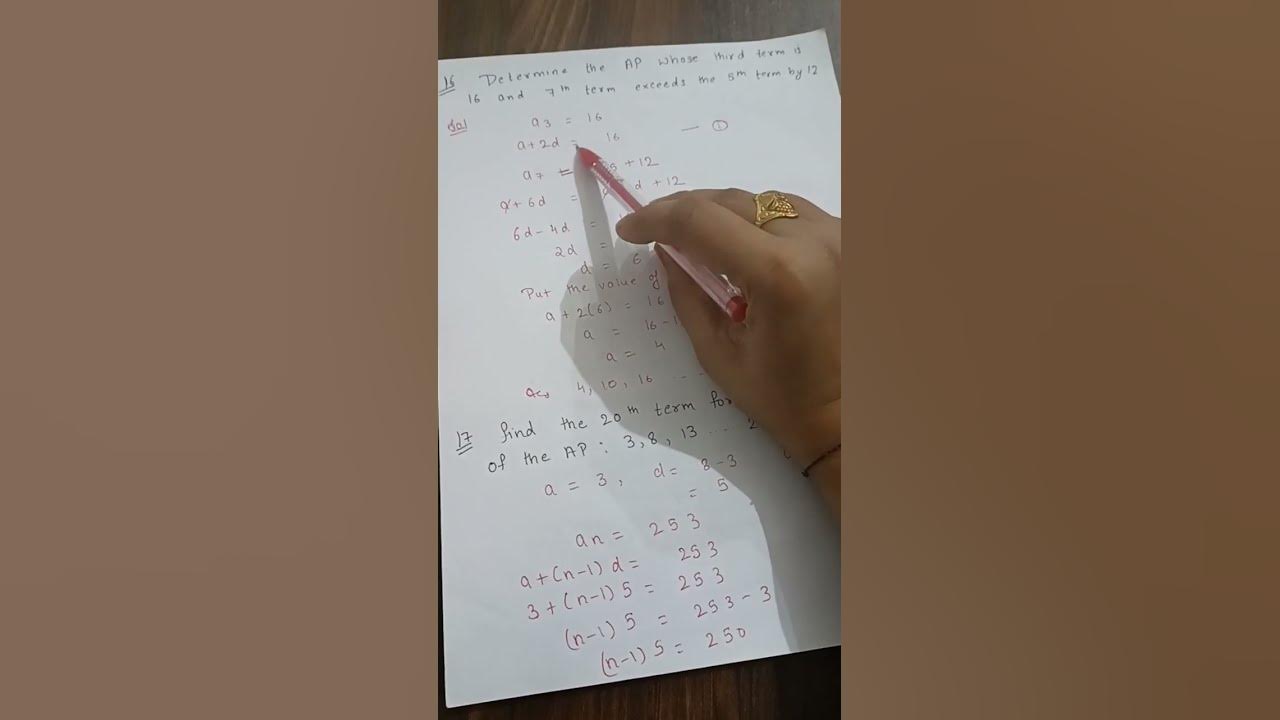 16 Determine the AP whose third term is
16 and 7th term exceeds the 5th term by 12
Sol
a3 = 16
a+2d = 16 — ①
a7 = 5 +12
a+ 6d = d +12
6d-4d =
2d =
d = 6
Put the value of
a + 2(6) = 16
a = 16-1
a = 4
4, 10, 16 ---
17 find the 20th term
of the AP : 3, 8, 13 ... 2
a = 3, d= 8-3
= 5
an = 253
a+(n-1) d = 253
3+(n-1) 5 = 253
(n-1) 5 = 253-3
(n-1) 5 = 250